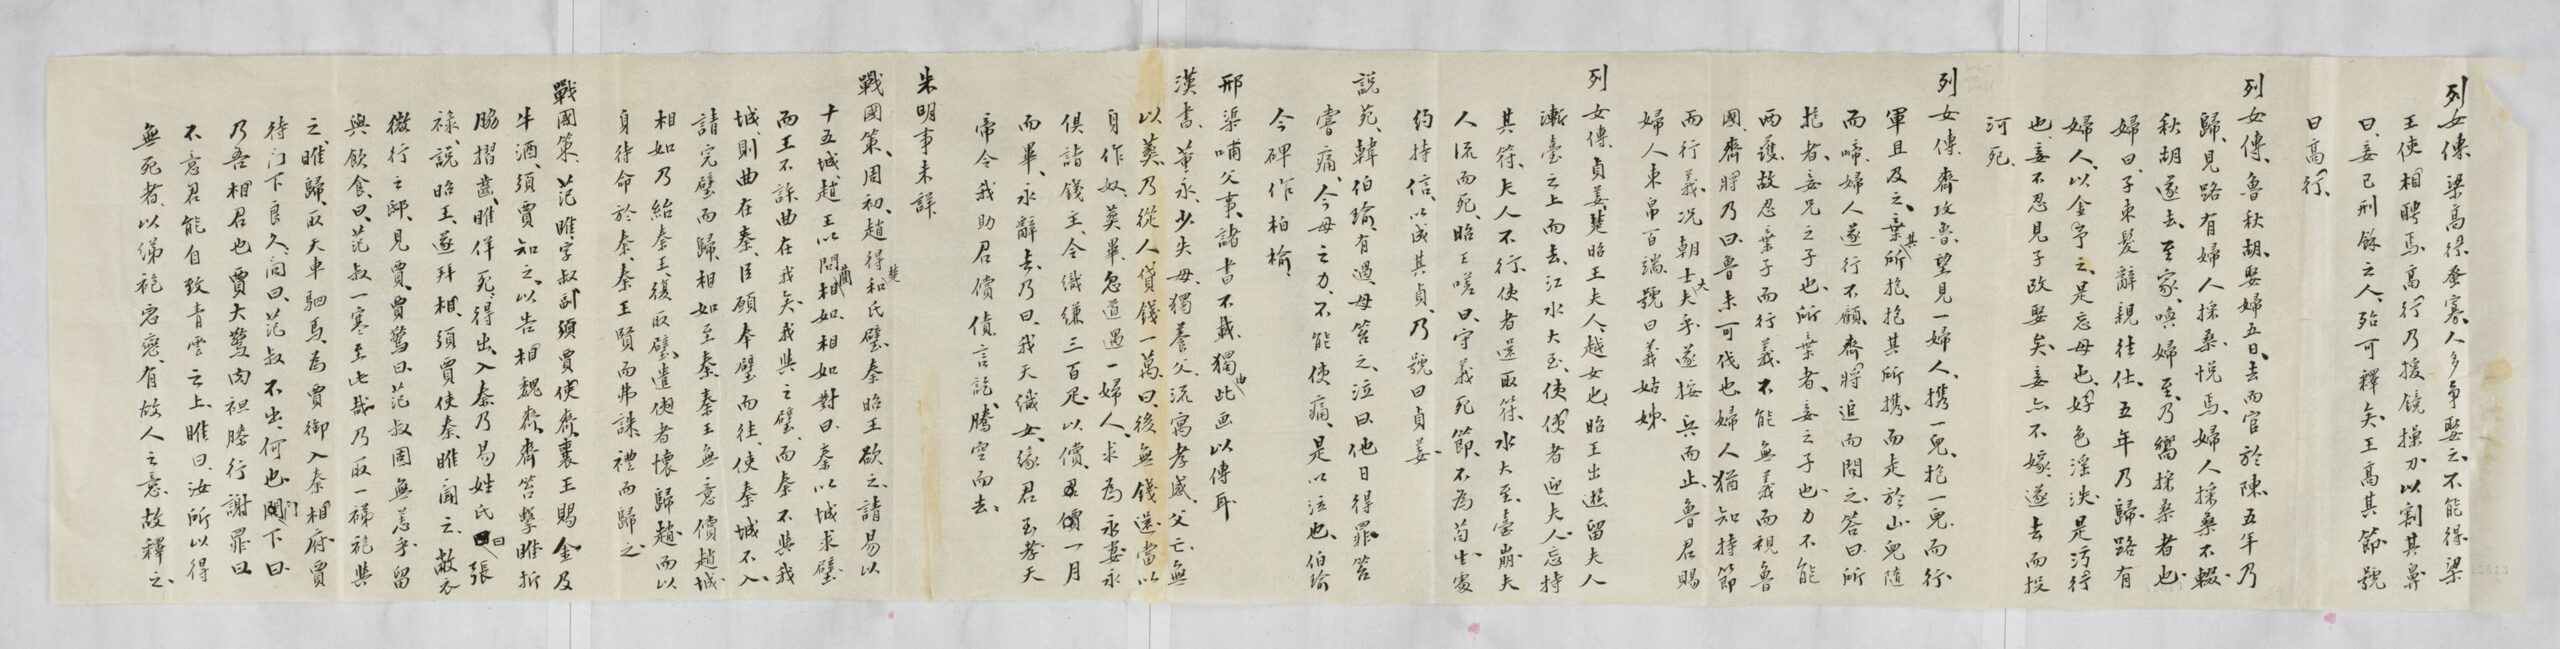 列女傳、梁高行榮寡、人多爭娶之、不能得、梁
王使相聘焉、高行乃援鏡操刀以割其鼻
曰、妾已刑餘之人、殆可釋矣、王高其節、號
曰高行、
列女傳、魯秋胡、娶婦五日、去而官於陳、五年乃
歸、見路有婦人採桑、悅焉、婦人採桑不輟、
秋胡遂去、至家、喚婦至、乃嚮採桑者也、
婦曰、子束髮辭親往仕、五年乃歸、路有
婦人、以金予之、是忘母也、好色淫泆、是污行
也、妾不忍見子改娶矣、妾亦不嫁、遂去而投
河死、
列女傳、齊攻魯、望見一婦人、攜一兒、抱一兒、而行、
軍且及之、棄其所抱、抱其所攜、而走於山、兒隨
而啼、婦人遂行不顧、齊將追而問之、答曰、所
抱者、妾兄之子也、所棄者、妾之子也、力不能
兩護、故忍棄子而行義、不能無義而視魯
國、齊將乃曰、魯未可伐也、婦人猶知持節
而行義、況朝士大夫乎、遂按兵而止、魯君賜
婦人束帛百端、號曰義姑姊
列女傳、貞姜、楚昭王夫人、越女也、昭王出遊、留夫人
漸臺之上而去、江水大至、使使者迎夫人、忘持
其符、夫人不行、使者還取符、水大至、臺崩、夫
人流而死、昭王嗟曰、守義死節、不為苟生、處
約持信、以成其貞、乃號曰貞姜
說苑、韓伯瑜有過、母笞之、泣曰、他日得罪、笞
嘗痛、今母之力、不能使痛、是以泣也、伯瑜
今碑作柏榆、
邢渠哺父事、諸書不載、獨此由画以傳耳
漢書、董永、少失母、獨養父、流寓孝感、父亡、無
以葬、乃從人貸錢一萬、曰、後無錢還、當以
身作奴、葬畢、忽道遇一婦人、求為永妻、永
俱詣錢主、令織縑三百疋以償、一月
而畢、永辭去、乃曰、我天織女、緣君至孝、天
帝令我助君償債、言訖、騰空而去、
朱明事未詳
戰國策、周初、趙得楚和氏璧、秦昭王欲之、請易以
十五城、趙王以問藺相如、相如對曰、秦以城求璧
而王不許、曲在我矣、我與之璧、而秦不與我
城、則曲在秦、臣願奉璧而往、使秦城不入、
請完璧而歸、相如至秦、秦王無意償趙城
相如乃紿秦王、復取璧、遣使者懷歸趙、而以
身待命於秦、秦王賢而弗誅、禮而歸之、
戰國策、范睢、字叔、副須賈使齊、襄王賜金及
牛酒、須賈知之、以告相魏齊、齊笞擊睢、折
脇摺齒、睢佯死、得出、入秦、乃易姓氏曰張
祿、說昭王、遂拜相、須賈使秦、睢聞之、敝衣
微行之邸、見賈、賈驚曰、范叔固無恙乎、留
與飲食、曰、范叔一寒至此哉、乃取一綈袍與
之、睢歸、取大車駟馬、為賈御、入秦相府、賈
待门下良久、问曰、范叔不出、何也、门下曰
乃吾相君也、賈大驚、肉袒膝行謝罪曰
不意君能自致青雲之上、睢曰、汝所以得
無死者、以綈袍恋恋、有故人之意、故釋之、